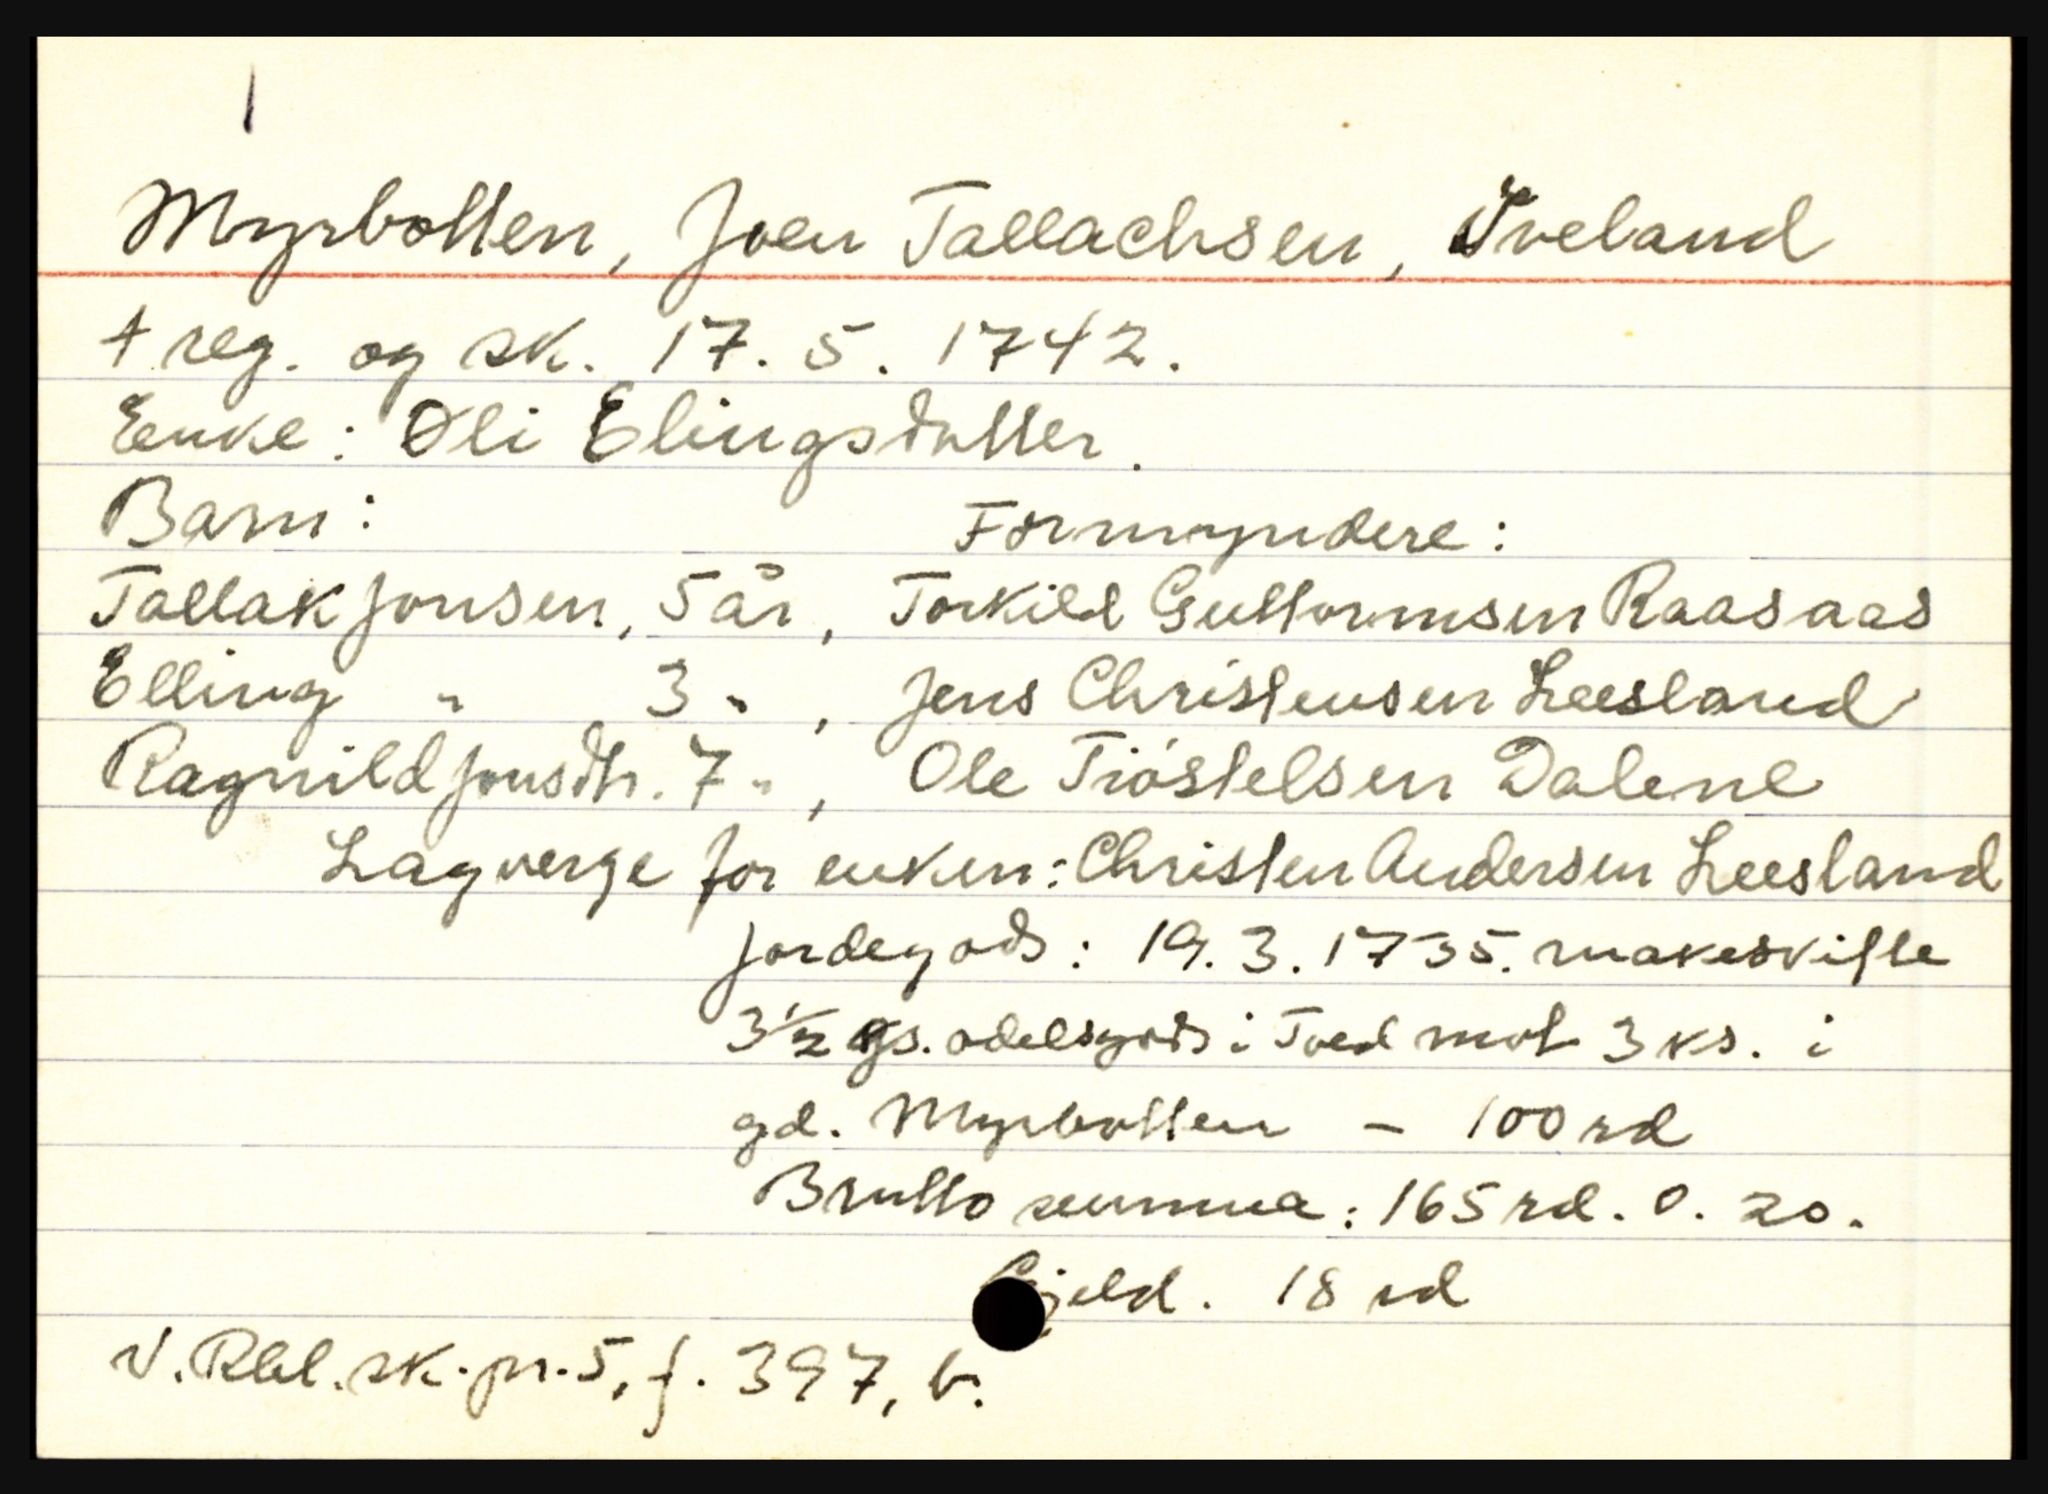 1
Myrbotten, Joen Tallachsen, Iveland
† reg. og sk. 17. 5. 1742.
Enke: Oli Elingsdatter.
Barn: Formyndere:
Tallak Jonsen, 5 år, Torkild Guttormsen Raasaas
Elling " 3 ", Jens Christensen Leesland
Ragnild Jonsdtr. 7 ", Ole Tiöstelsen Dalene
Lagverge for enken: Christen Andersen Leesland
Jordegods: 19. 3. 1735. makeskifte
3½ gs. odelsgods i Tved mot 3 ks. i
gd. Myrbotten - 100 rd
Brutto summa: 165 rd. 0. 20.
Gjeld. 18 rd
N. Rbl. sk. pr. 5, f. 397, b.